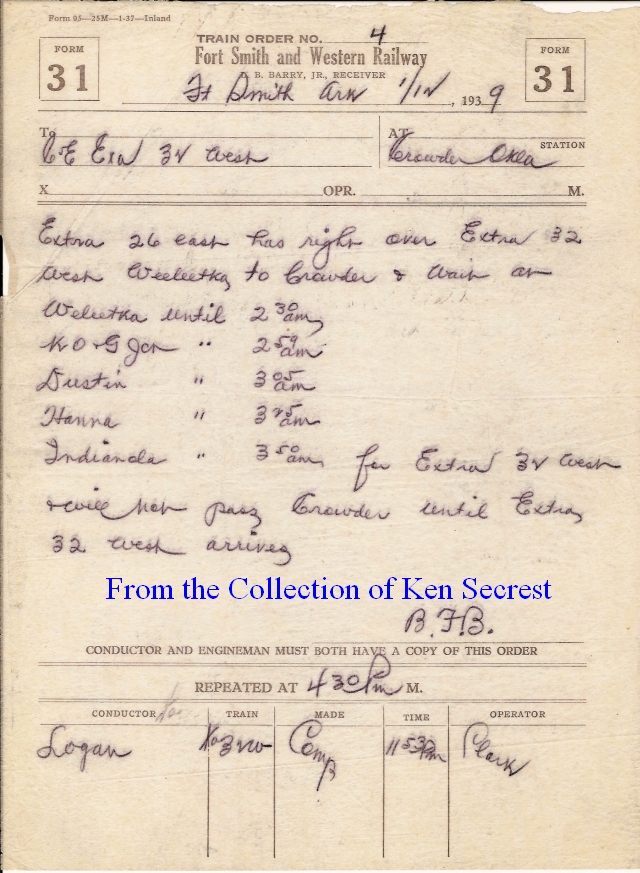 Form 05—25M—1-37—Inland
TRAIN ORDER NO. 4
FORM 31
Fort Smith and Western Railway
FORM 31
B. BARRY, JR., RECEIVER
Ft Smith Ark 1/12, 1939
To C&E Exa 32 West
AT Crowder Okla STATION
X OPR. M.
Extra 26 east has right over Extra 32
West Weleetka to Crowder & Wait at
Weleetka until 2 30 am
K O & G Jct " 2 59 am
Dustin " 3 05 am
Hanna " 3 25 am
Indianola " 3 50 am for Extra 32 West
& will not pass Crowder until Extra
32 West arrives
From the Collection of Ken Secrest
B.F.B.
CONDUCTOR AND ENGINEMAN MUST BOTH HAVE A COPY OF THIS ORDER
REPEATED AT 4 30 Pm M.
CONDUCTOR TRAIN MADE TIME OPERATOR
Logan No 32W Comp 11 53 Pm Clark